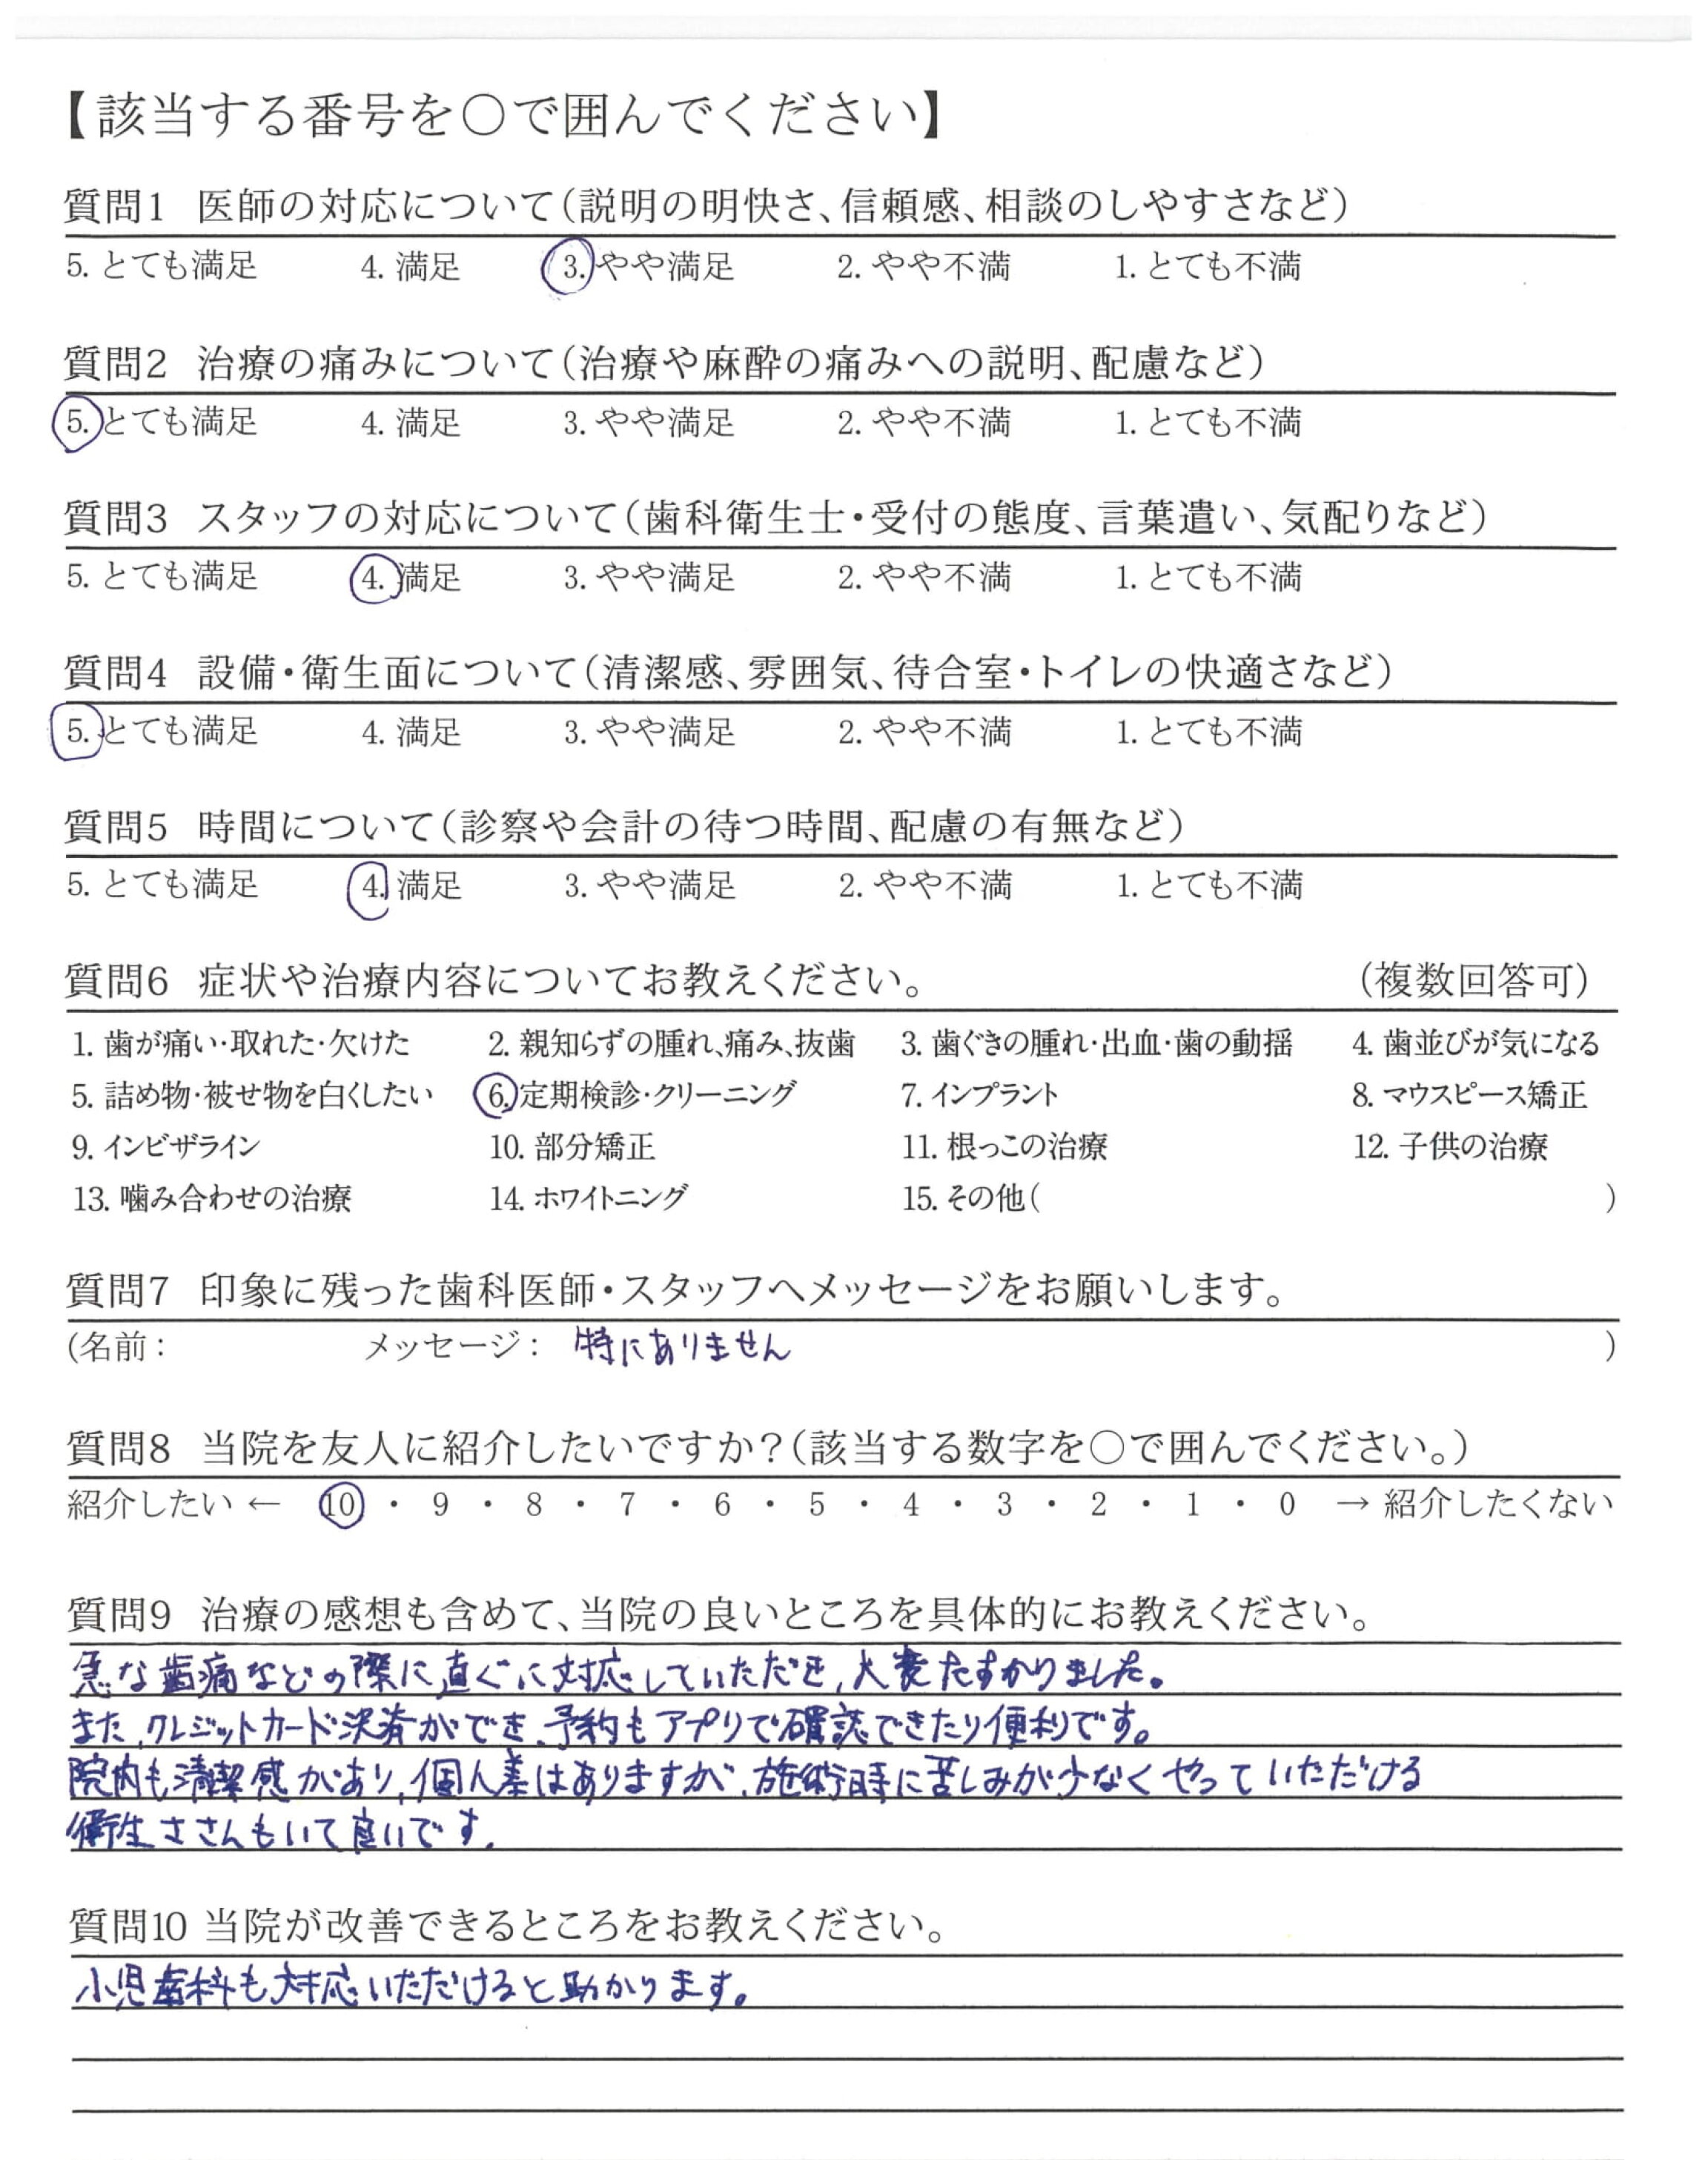 【該当する番号を○で囲んでください】
質問1 医師の対応について(説明の明快さ、信頼感、相談のしやすさなど)
5. とても満足 4. 満足 3. やや満足 2. やや不満 1. とても不満
質問2 治療の痛みについて(治療や麻酔の痛みへの説明、配慮など)
5. とても満足 4. 満足 3. やや満足 2. やや不満 1. とても不満
質問3 スタッフの対応について(歯科衛生士・受付の態度、言葉遣い、気配りなど)
5. とても満足 4. 満足 3. やや満足 2. やや不満 1. とても不満
質問4 設備・衛生面について(清潔感、雰囲気、待合室・トイレの快適さなど)
5. とても満足 4. 満足 3. やや満足 2. やや不満 1. とても不満
質問5 時間について(診察や会計の待つ時間、配慮の有無など)
5. とても満足 4. 満足 3. やや満足 2. やや不満 1. とても不満
質問6 症状や治療内容についてお教えください。 (複数回答可)
1. 歯が痛い・取れた・欠けた 2. 親知らずの腫れ、痛み、抜歯 3. 歯ぐきの腫れ・出血・歯の動揺 4. 歯並びが気になる
5. 詰め物・被せ物を白くしたい 6. 定期検診・クリーニング 7. インプラント 8. マウスピース矯正
9. インビザライン 10. 部分矯正 11. 根っこの治療 12. 子供の治療
13. 噛み合わせの治療 14. ホワイトニング 15. その他( )
質問7 印象に残った歯科医師・スタッフへメッセージをお願いします。
(名前: メッセージ: 特にありません )
質問8 当院を友人に紹介したいですか?(該当する数字を○で囲んでください。)
紹介したい ← 10 ・ 9 ・ 8 ・ 7 ・ 6 ・ 5 ・ 4 ・ 3 ・ 2 ・ 1 ・ 0 → 紹介したくない
質問9 治療の感想も含めて、当院の良いところを具体的にお教えください。
急な歯痛などの際に直ぐに対応していただき、大変たすかりました。
また、クレジットカード決済ができ、予約もアプリで確認できたり便利です。
院内も清潔感があり、個人差はありますが、施術時に苦しみが少なくやっていただける
衛生ささんもいて良いです。
質問10 当院が改善できるところをお教えください。
小児歯科も対応いただけると助かります。